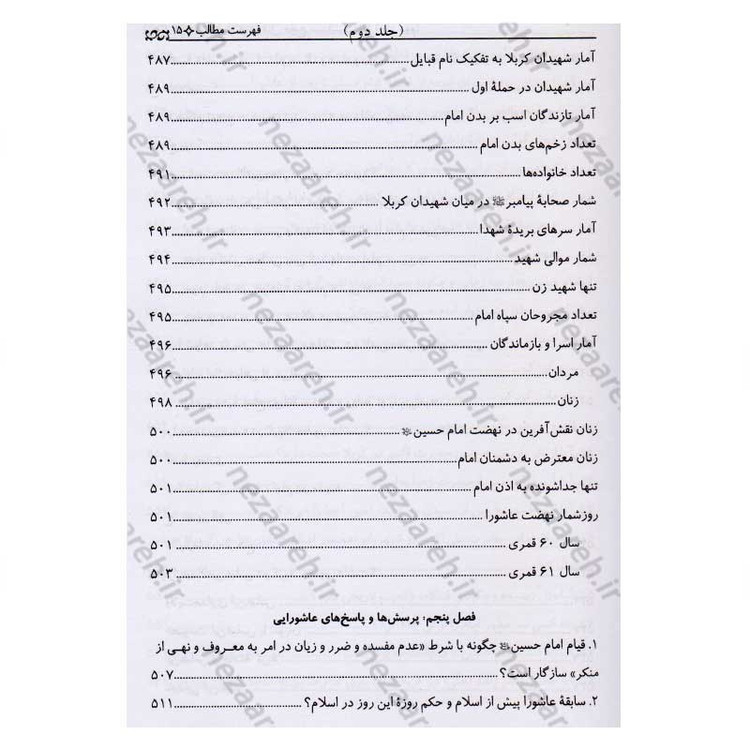 (جلد دوم)
فهرست مطالب ۱۵
آمار شهیدان کربلا به تفکیک نام قبایل ۴۸۷
آمار شهیدان در حملهٔ اول ۴۸۹
آمار تازندگان اسب بر بدن امام ۴۸۹
تعداد زخم‌های بدن امام ۴۸۹
تعداد خانواده‌ها ۴۹۱
شمار صحابهٔ پیامبرﷺ در میان شهیدان کربلا ۴۹۲
آمار سرهای بریدهٔ شهدا ۴۹۳
شمار موالی شهید ۴۹۴
تنها شهید زن ۴۹۵
تعداد مجروحان سپاه امام ۴۹۵
آمار اسرا و بازماندگان ۴۹۶
مردان ۴۹۶
زنان ۴۹۸
زنان نقش‌آفرین در نهضت امام حسین ۵۰۰
زنان معترض به دشمنان امام ۵۰۰
تنها جداشونده به اذن امام ۵۰۱
روزشمار نهضت عاشورا ۵۰۱
سال ۶۰ قمری ۵۰۱
سال ۶۱ قمری ۵۰۳
فصل پنجم: پرسش‌ها و پاسخ‌های عاشورایی
۱. قیام امام حسین چگونه با شرط «عدم مفسده و ضرر و زیان در امر به معروف و نهی از
منکر» سازگار است؟ ۵۰۷
۲. سابقهٔ عاشورا پیش از اسلام و حکم روزهٔ این روز در اسلام؟ ۵۱۱
nezaareh.ir